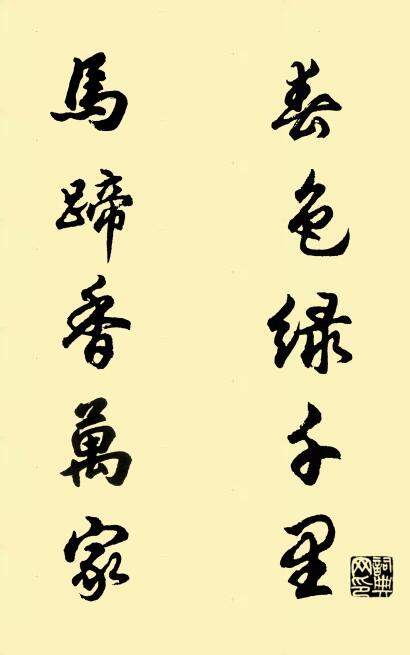 春色绿千里
馬蹄香萬家
詞典網印